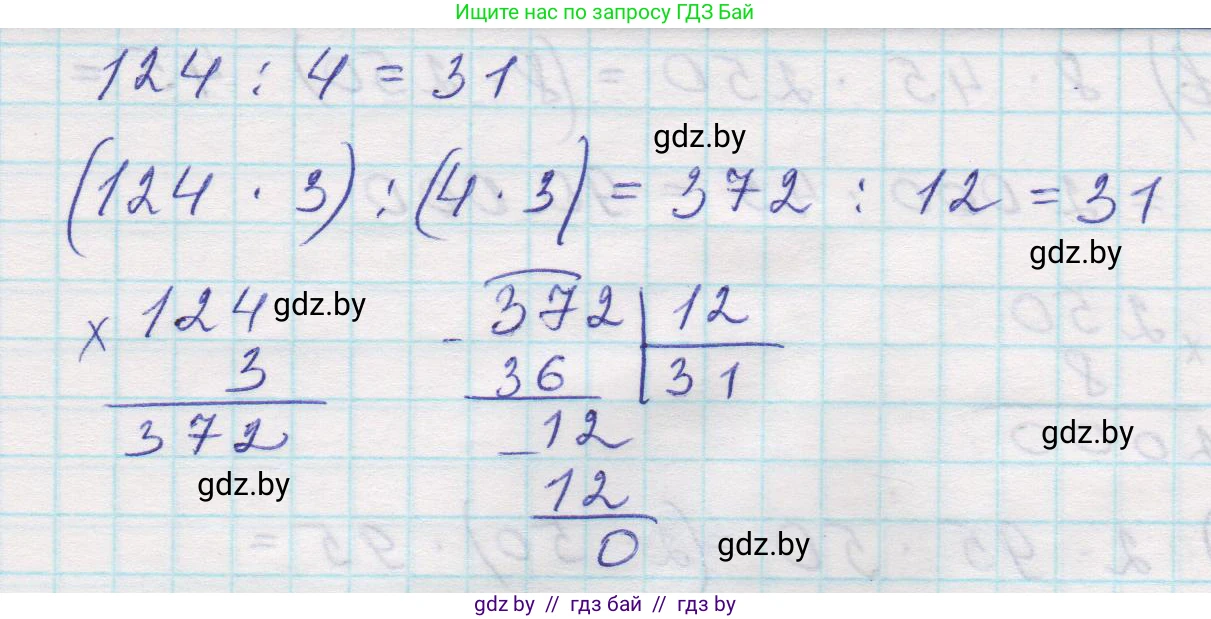 Ищите нас по запросу ГДЗ Бай
124 : 4 = 31
gdz.by
(124 · 3) : (4 · 3) = 372 : 12 = 31
gdz.by
× 124 gdz.by
3
372
gdz.by
- 372 | 12
36 | 31
- 12
gdz.by
12
0
gdz.by
gdz by // гдз бай // гдз by